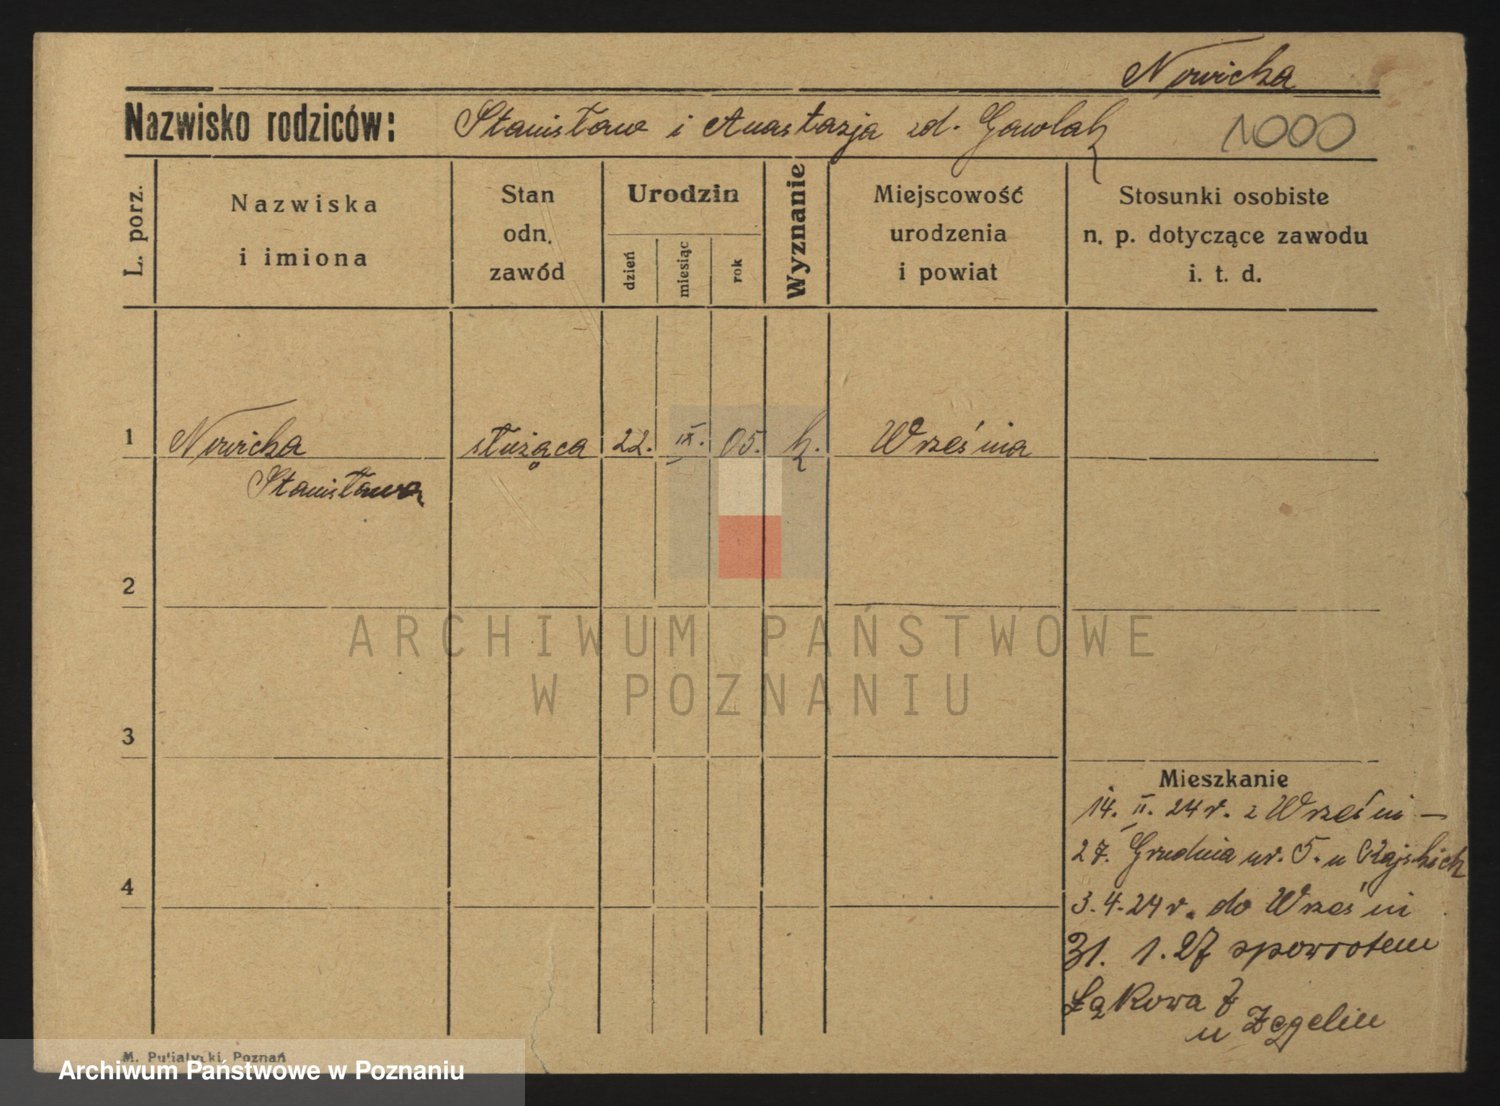 Nowicka
Nazwisko rodziców: Stanisław i Anastazja zd. Gawlak 1000
L. porz.
Nazwiska
i imiona
Stan
odn.
zawód
Urodzin
dzień
miesiąc
rok
Wyznanie
Miejscowość
urodzenia
i powiat
Stosunki osobiste
n. p. dotyczące zawodu
i. t. d.
1 Nowicka służąca 22. IX. 05. k. Września
Stanisława
2
ARCHIWUM PAŃSTWOWE
W POZNANIU
3
Mieszkanie
14. II. 24 r. z Wrześni —
27. Grudnia nr. 5. u
4
3.4.24 r. do Wrześni
31. 1. 27 spowrotem
Łąkowa 7
u Zegelin
M. Pujiatycki, Poznań
Archiwum Państwowe w Poznaniu